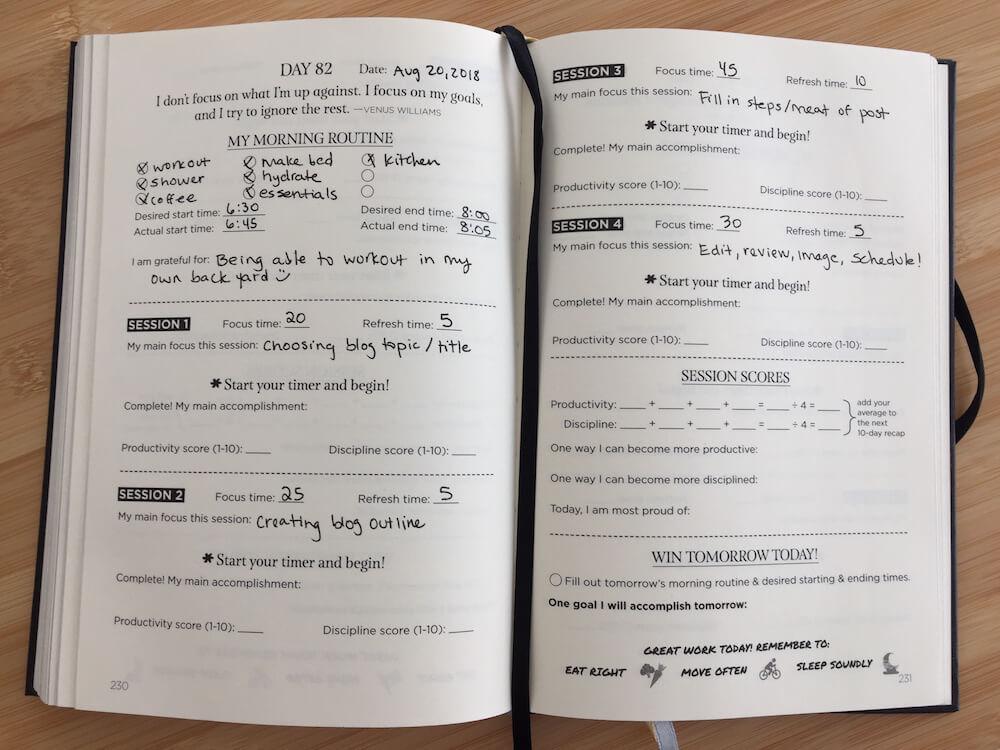 DAY 82 Date: Aug 20, 2018
I don't focus on what I'm up against. I focus on my goals,
and I try to ignore the rest. —VENUS WILLIAMS
MY MORNING ROUTINE
workout make bed kitchen
shower hydrate
coffee essentials
Desired start time: 6:30 Desired end time: 8:00
Actual start time: 6:45 Actual end time: 8:05
I am grateful for: Being able to workout in my
own back yard
SESSION 1 Focus time: 20 Refresh time: 5
My main focus this session: Choosing blog topic / title
* Start your timer and begin!
Complete! My main accomplishment:
Productivity score (1-10): ____ Discipline score (1-10): ____
SESSION 2 Focus time: 25 Refresh time: 5
My main focus this session: Creating blog outline
* Start your timer and begin!
Complete! My main accomplishment:
Productivity score (1-10): ____ Discipline score (1-10): ____
230
SESSION 3 Focus time: 45 Refresh time: 10
My main focus this session: Fill in steps/meat of post
* Start your timer and begin!
Complete! My main accomplishment:
Productivity score (1-10): ____ Discipline score (1-10): ____
SESSION 4 Focus time: 30 Refresh time: 5
My main focus this session: Edit, review, image, schedule!
* Start your timer and begin!
Complete! My main accomplishment:
Productivity score (1-10): ____ Discipline score (1-10): ____
SESSION SCORES
Productivity: ____ + ____ + ____ + ____ = ____ ÷ 4 = ____
Discipline: ____ + ____ + ____ + ____ = ____ ÷ 4 = ____
add your
average to
the next
10-day recap
One way I can become more productive:
One way I can become more disciplined:
Today, I am most proud of:
WIN TOMORROW TODAY!
Fill out tomorrow's morning routine & desired starting & ending times.
One goal I will accomplish tomorrow:
GREAT WORK TODAY! REMEMBER TO:
EAT RIGHT MOVE OFTEN SLEEP SOUNDLY
231